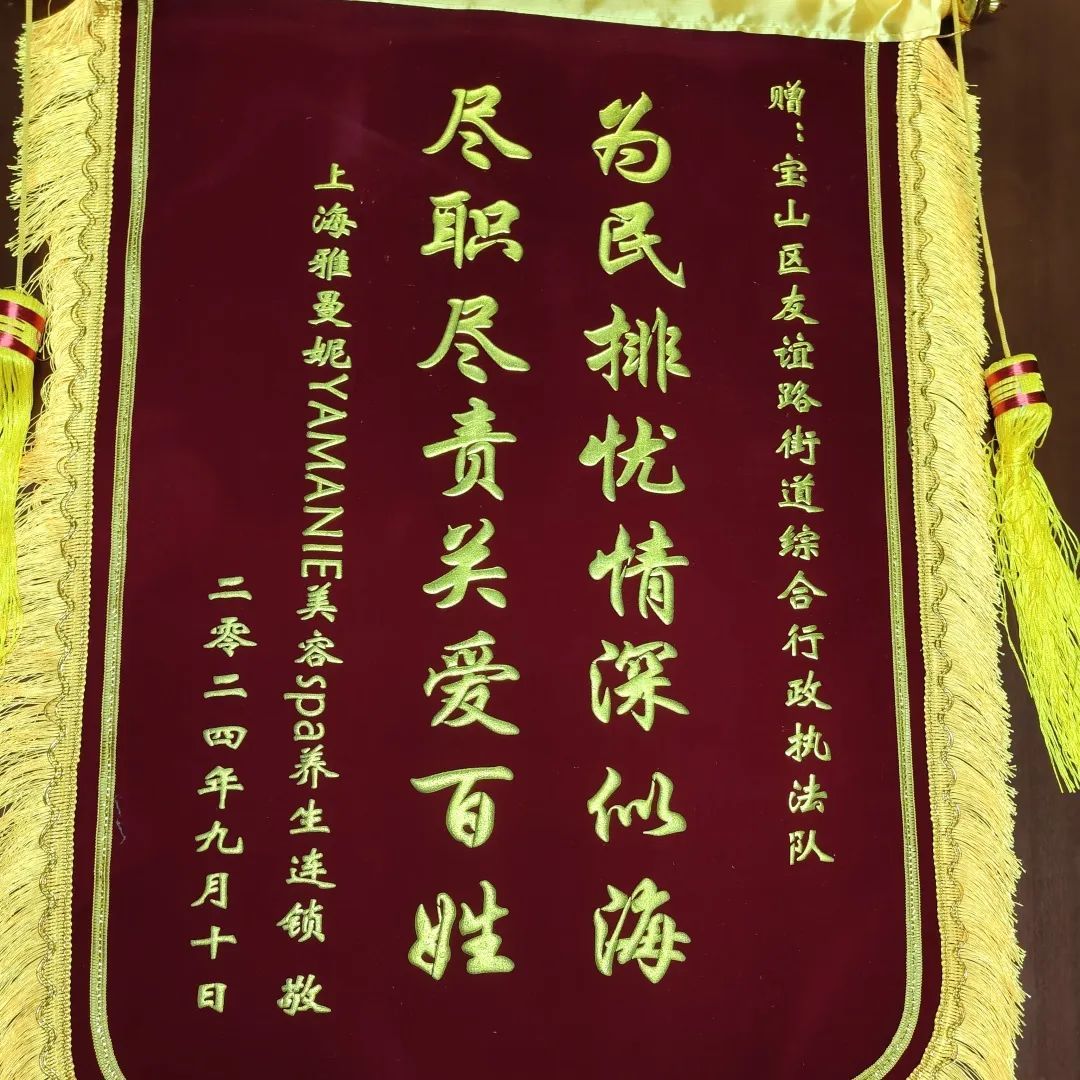 赠:宝山区友谊路街道综合行政执法队
为民排忧情深似海
尽职尽责关爱百姓
上海雅曼妮YAMANIE美容spa养生连锁 敬
二零二四年九月十日